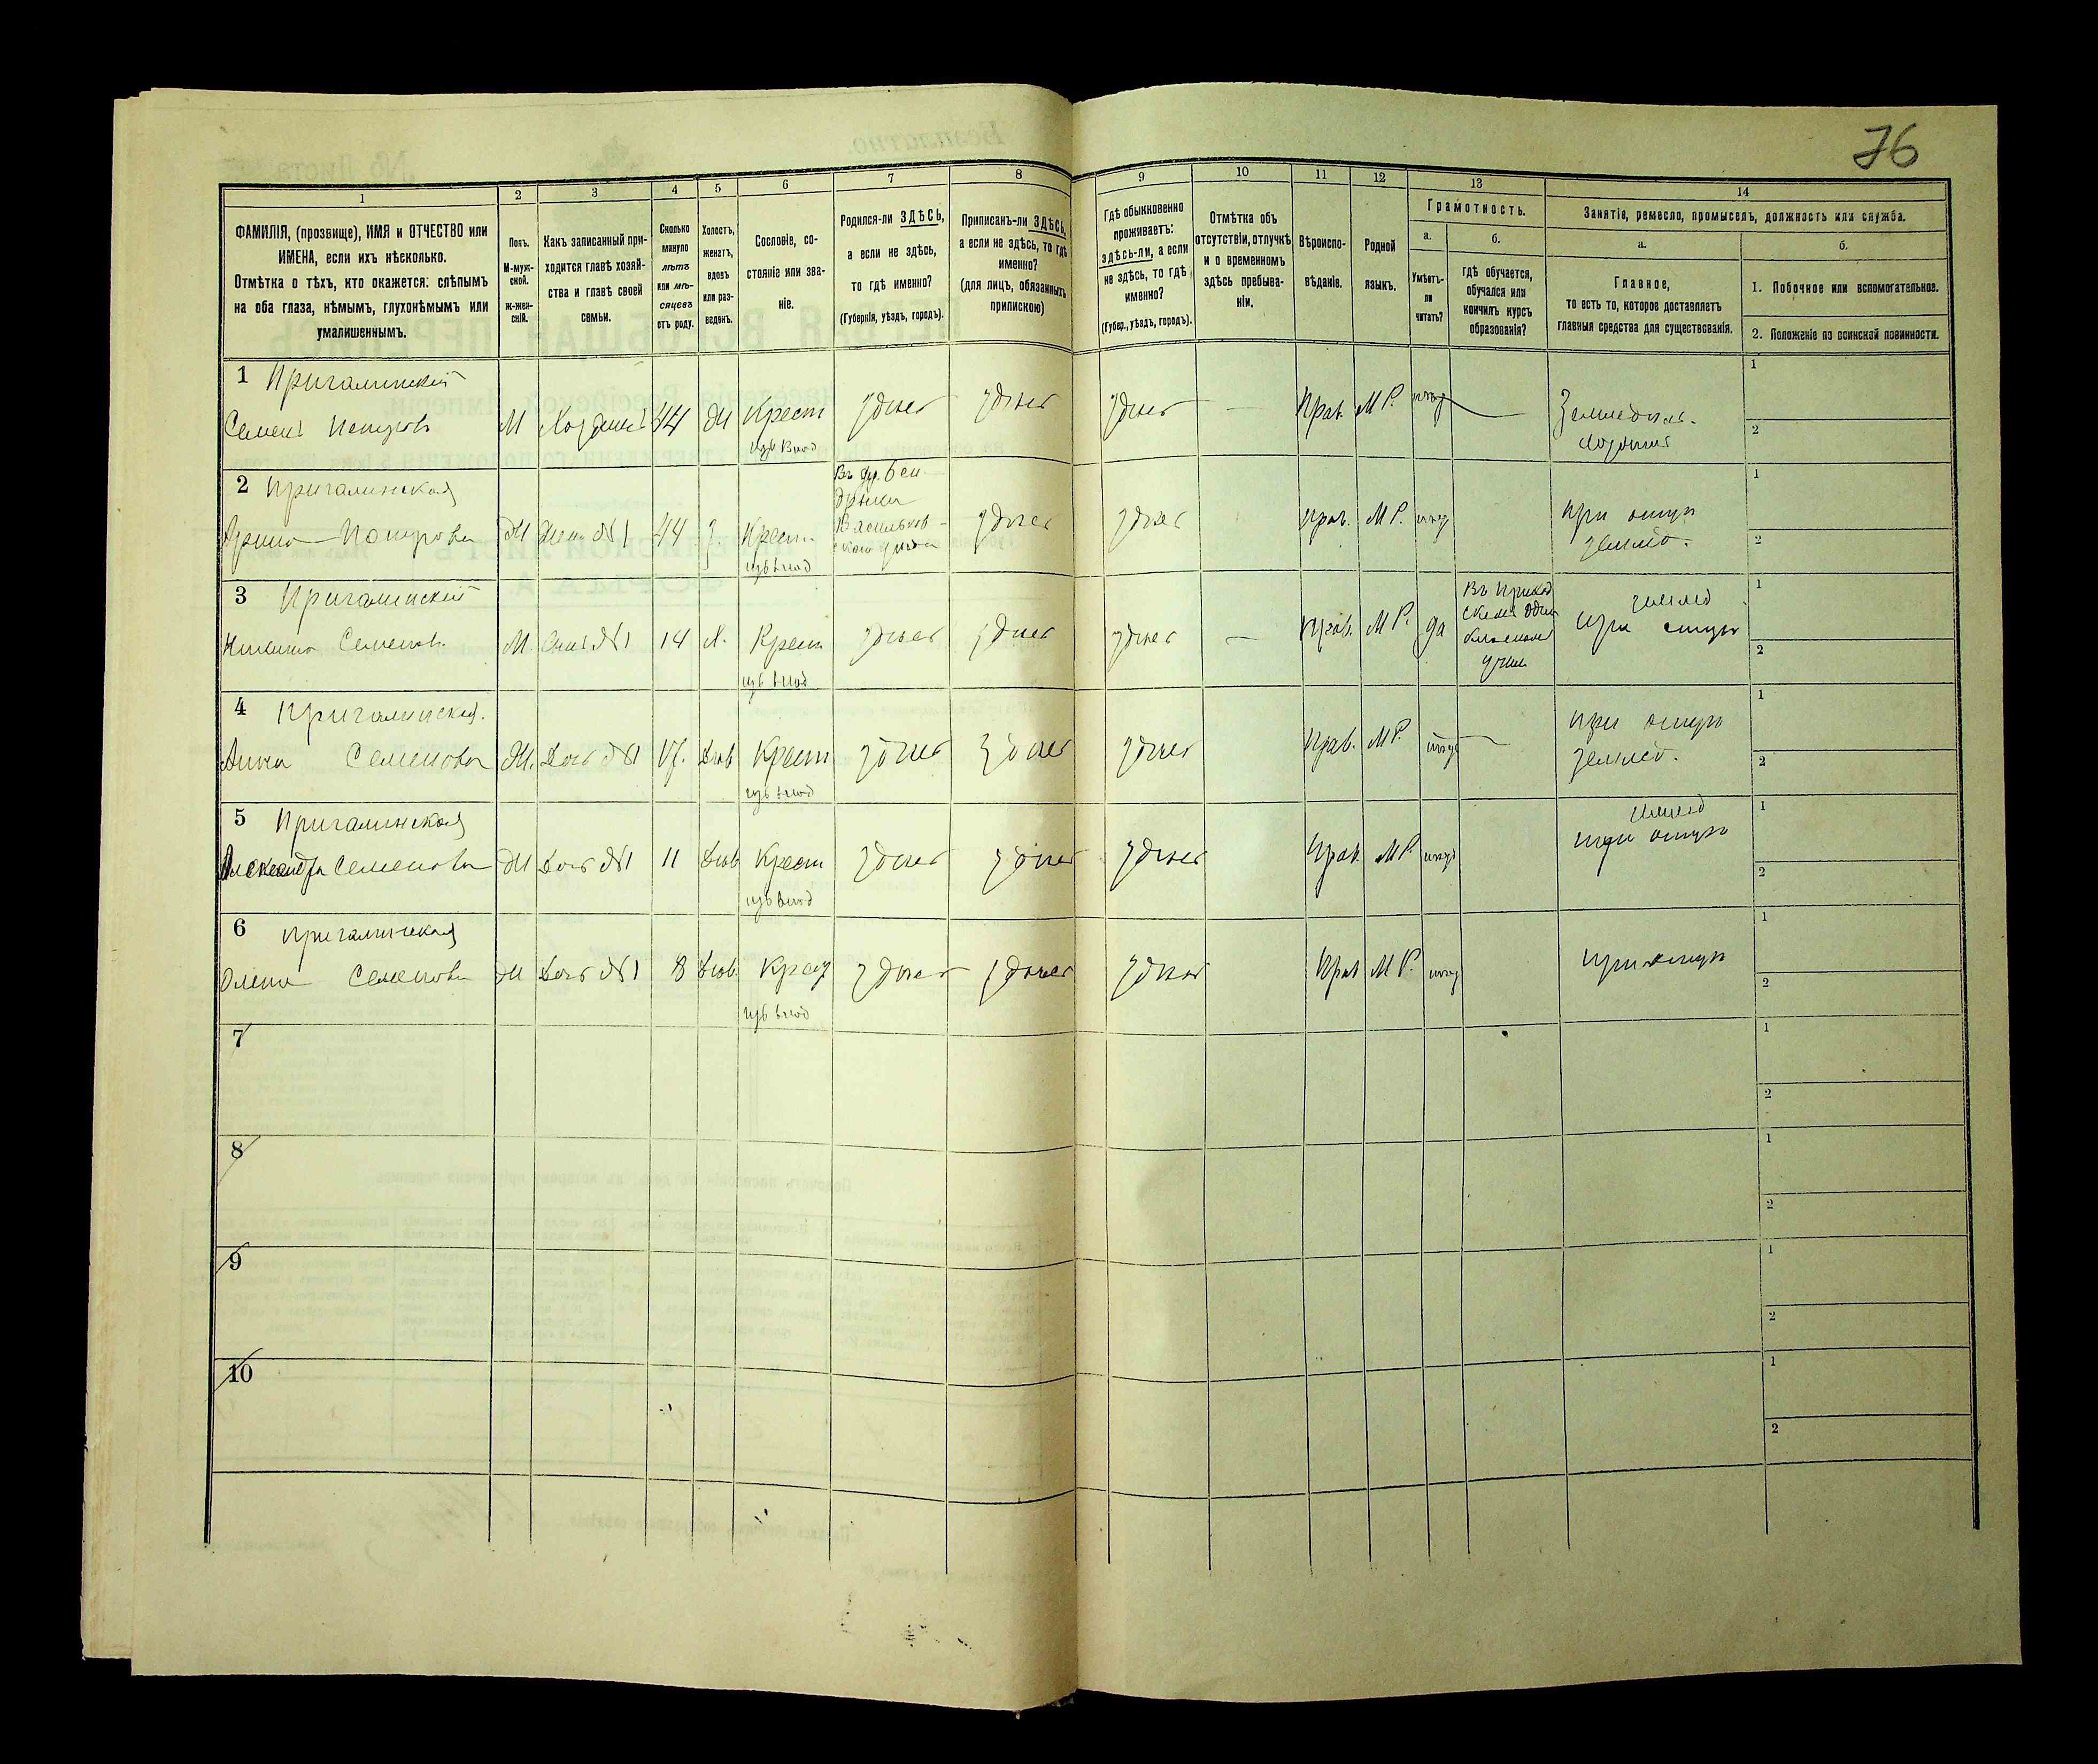 76
1 2 3 4 5 6 7 8 9 10 11 12 13 14
ФАМИЛІЯ, (прозвище), ИМЯ и ОТЧЕСТВО или
ИМЕНА, если ихъ нѣсколько.
Отмѣтка о тѣхъ, кто окажется: слѣпымъ
на оба глаза, нѣмымъ, глухонѣмымъ или
умалишеннымъ.
Полъ.
М-муж-
ской.
Ж-жен-
скій.
Какъ записанный при-
ходится главѣ хозяй-
ства и главѣ своей
семьи.
Сколько
минуло
лѣтъ
или мѣ-
сяцевъ
отъ роду.
Холостъ,
женатъ,
вдовъ
или раз-
веденъ.
Сословіе, со-
стояніе или зва-
ніе.
Родился-ли ЗДѢСЬ,
а если не здѣсь,
то гдѣ именно?
(Губернія, уѣздъ, городъ).
Приписанъ-ли ЗДѢСЬ,
а если не здѣсь, то гдѣ
именно?
(для лицъ, обязанныхъ
припискою)
Гдѣ обыкновенно
проживаетъ:
здѣсь-ли, а если
не здѣсь, то гдѣ
именно?
(Губер., уѣздъ, городъ).
Отмѣтка объ
отсутствіи, отлучкѣ
и о временномъ
здѣсь пребыва-
ніи.
Вѣроиспо-
вѣданіе.
Родной
языкъ.
Грамотность.
а.
Умѣетъ-
ли
читать?
б.
Гдѣ обучается,
обучался или
кончилъ курсъ
образованія?
Занятіе, ремесло, промыселъ, должность или служба.
а.
Главное,
то есть то, которое доставляетъ
главныя средства для существованія.
б.
1. Побочное или вспомогательное.
2. Положеніе по воинской повинности.
1 Пригалинский 1
Семенъ Петровъ М Хозяинъ 44 Ж Крест здѣсь здѣсь здѣсь — Прав. М Р. нѣтъ — Земледѣл.
хозяинъ 2
изъ влад
2 Пригалинская Въ 1
Васильков-
скаго уѣзда
Арина Петрова Ж Жена №1 44 З. Крест. здѣсь здѣсь Прав. М Р. нѣтъ при отцѣ
землед. 2
изъ влад
3 Пригалинский Въ Приход 1
землед
Никита Семенов. М. Сынъ №1 14 Х. Крест. здѣсь здѣсь здѣсь — Прав. М Р. да при отцѣ
училищ 2
изъ влад
4 Пригалинская. 1
Анна Семенова Ж. Дочь №1 17. Дѣв Крест здѣсь здѣсь здѣсь Прав. М Р. нѣтъ — при отцѣ
землед. 2
изъ влад
5 Пригалинская землед 1
Александра Семенова Ж Дочь №1 11 Дѣв Крест здѣсь здѣсь здѣсь Прав М Р. нѣтъ при отцѣ
2
изъ влад
6 Пригалинская 1
Олена Семенова Ж Дочь №1 8 Дѣв. Крест здѣсь здѣсь здѣсь Прав М Р. нѣтъ при отцѣ
2
изъ влад
7 1
2
8 1
2
9 1
2
10 1
2